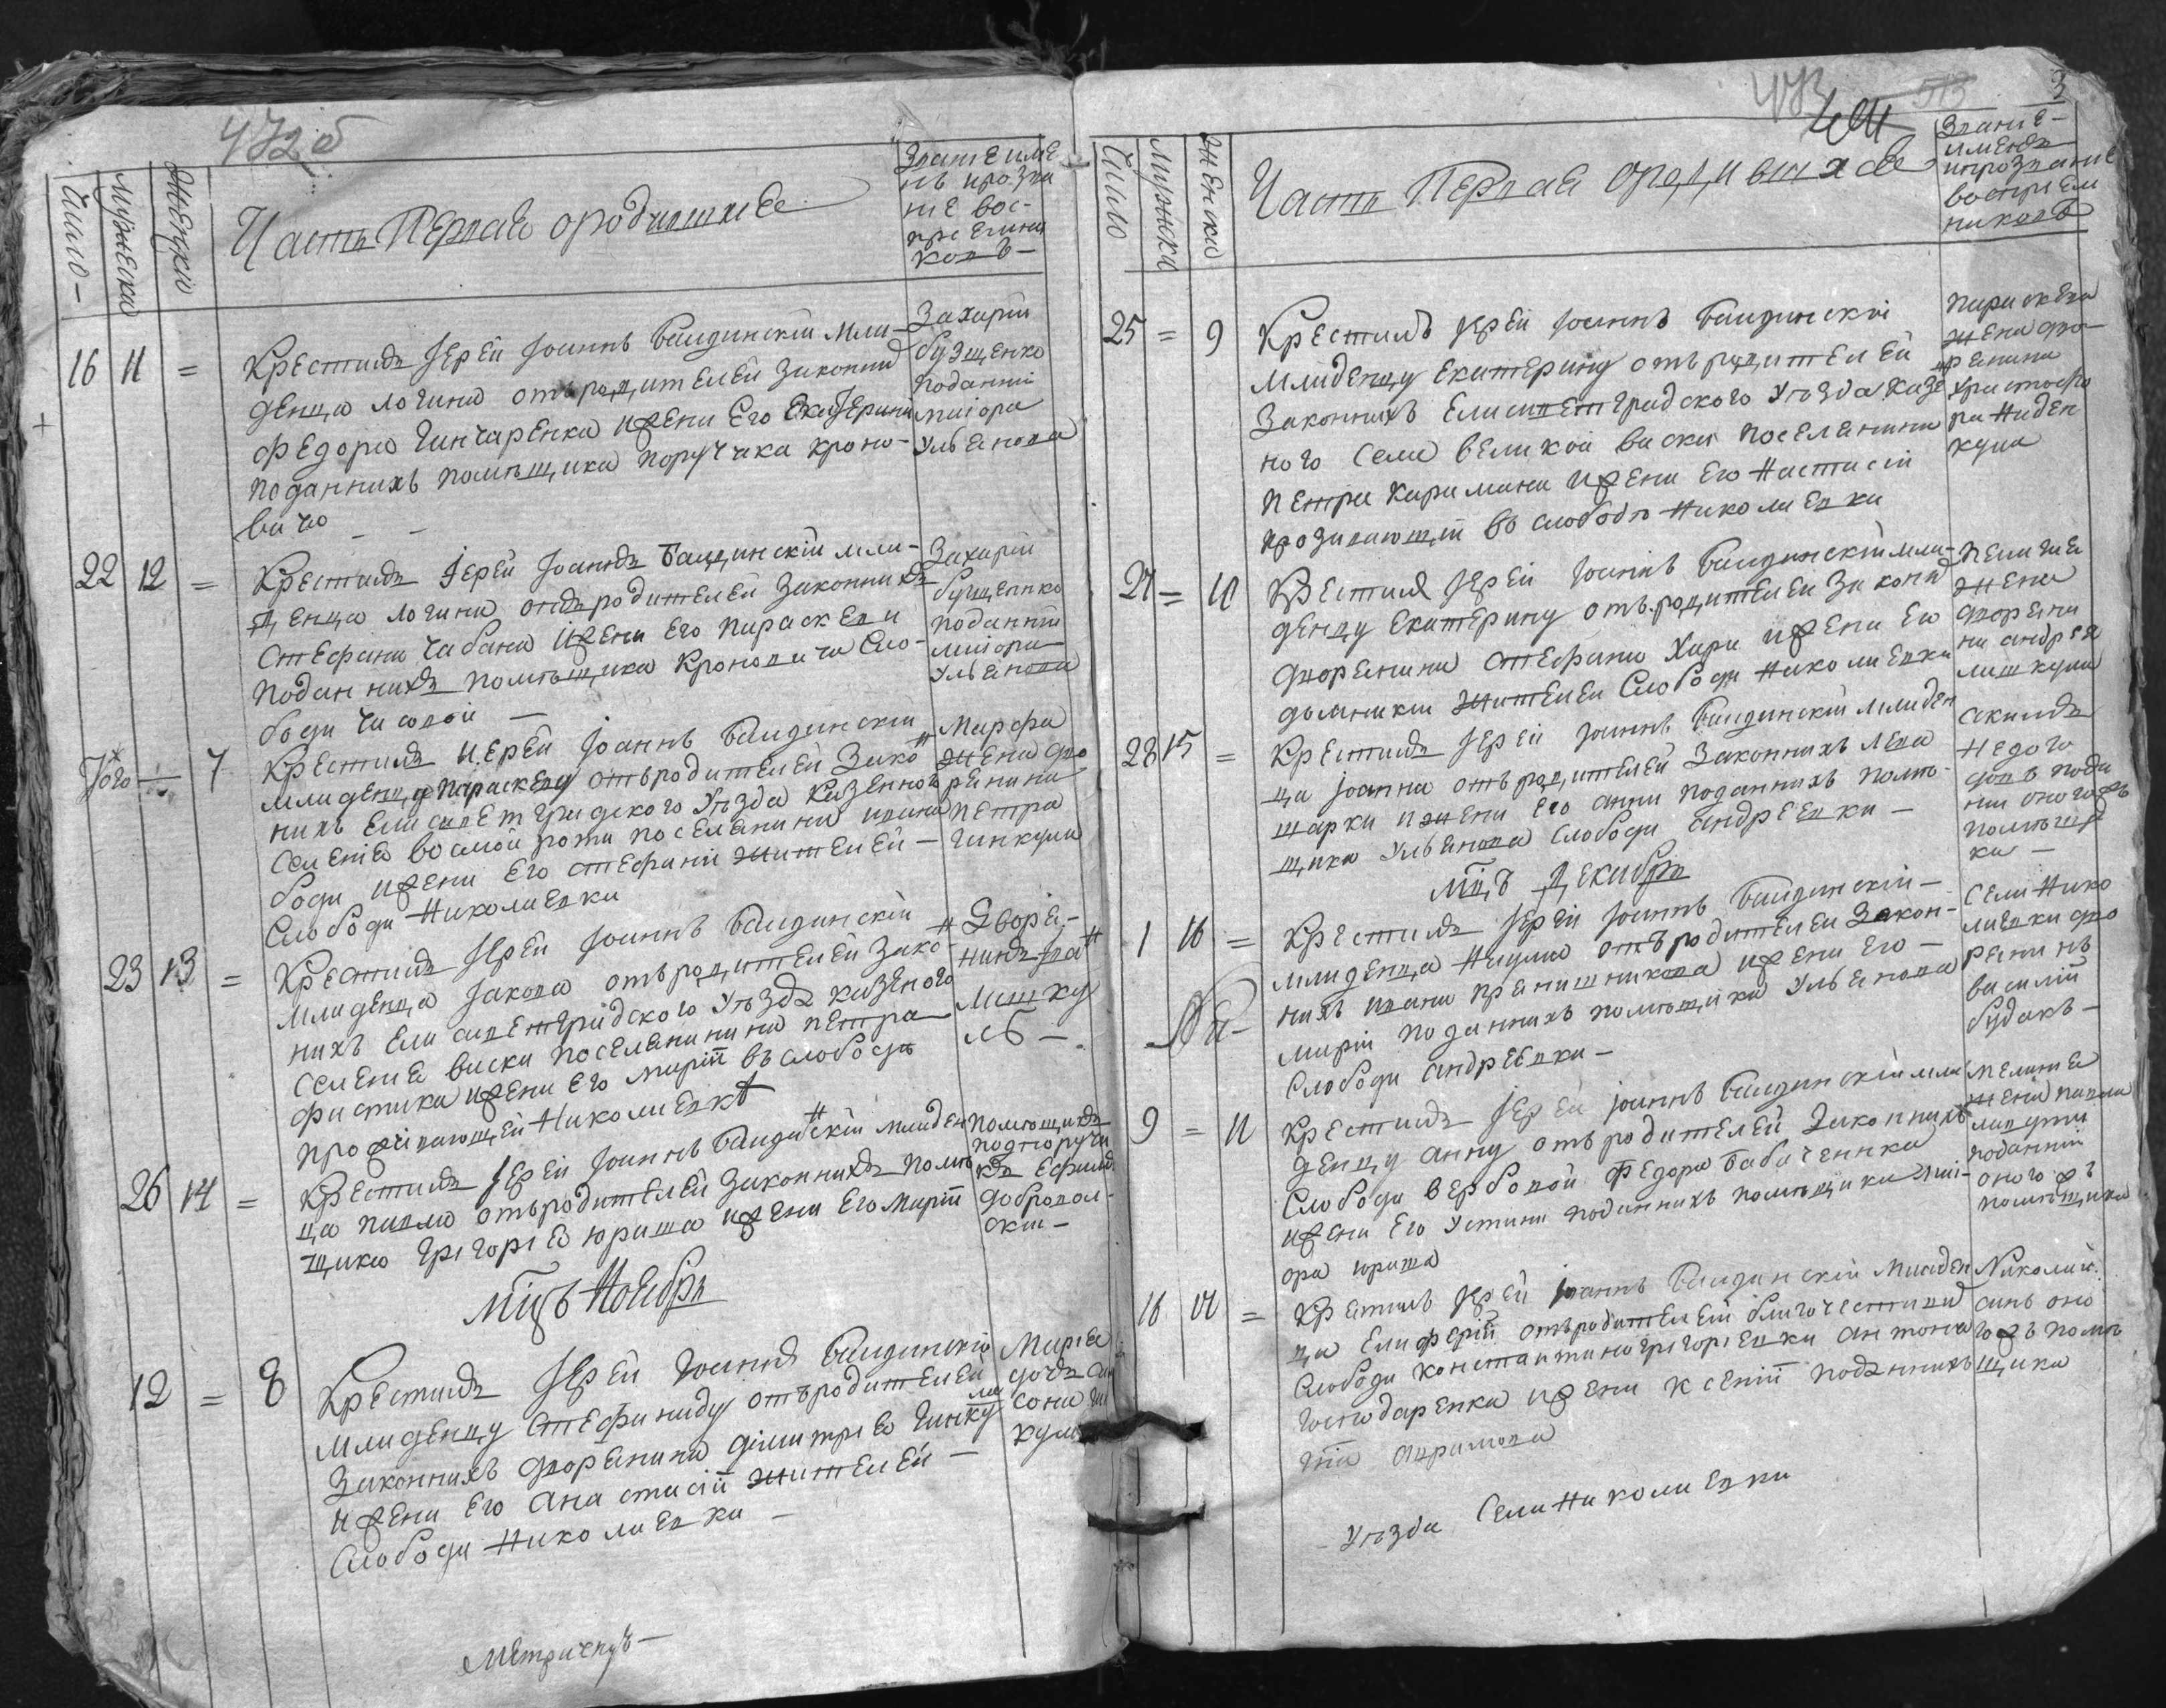 472 об
Число
Мужески
Женски
Часть Первая о родившихся
Звание име
нъ и прозва
ние вос-
прiемни
ковъ
16 11 =
Крестилъ Іерей Іоаннъ Бандинскiй мла-
денца логина отъ родителей законних
федора Гинчаренка и жени Его Екатерини
поданнихъ помѣщика поручика Кроно-
вича
Захарiй
бузщенко
поданнiй
маiора
Ульянова
22 12 =
Крестилъ Іерей Іоаннъ Бандинскiй мла-
денца логина отъ родителей законнихъ
стефана Чабана и жени Его параскеви
поданнихъ помѣщика Кроновича Сло-
боди Чи
Захарiй
бущенко
поданнiй
маiора
Ульянова
Того 7
Крестилъ Иерей Іоаннъ Бандинскiй
младенцу параскеву отъ родителей зако
нихъ Елисаветградского Уѣзда казенного
Селенiя восмой роти поселянина ивана
боди и жени Его стефанiи жителей
Слободи Николаевки
Марфа
жена дво
ренина
петра
Гинкула
23 13 =
Крестилъ Іерей Іоаннъ Бандинскiй
младенца Іакова отъ родителей зако
нихъ Елисаветградского Уѣзда казеного
Селения виски поселянина петра
фистика и жени Его марiи въ слободѣ
проживающей Николаевкѣ
Дворя-
нинъ Iва
Мишку
лъ
26 14 =
Крестилъ Іерей Іоаннъ Бандинскiй младен
ца павла отъ родителей законнихъ помѣ
щика Григория юриша и жени Его марiи
помѣщикъ
подпоручи
къ Ефимъ
добровол-
скiй
мцъ Ноябрь
12 = 8
Крестилъ Іерей Іоаннъ Бандинскiй
младенцу стефаниду отъ родителей
законнихъ дворенина димитрiя Гинкула
и жени Его анастасiи жителей
Слободи Николаевки
Марiя
дочь
Метричнухъ
473
3
Число
Мужски
Женски
Часть Первая о родившихся
Звание
именъ
и прозвание
воспрiем
никовъ
25 = 9
Крестилъ Іерей Іоаннъ Бандинскiй
младенцу Екатерину отъ родителей
законнихъ Елисаветградского Уѣзда казе
ного Села великой виски поселянина
петра Карамана и жени Его настасiи
прозивающiй въ слободѣ Николаевки
параскева
жена дво-
ренина
христофо
ра Наден
кула
27 = 10
Крестил Іерей Іоаннъ Бандинскiй мла-
денцу Екатерину отъ родителей законих
дворенина стефана Хара и жени Его
домникии жителей Слободи Николаевки
пелагия
жена
дворени
на андрея
мишкула
28 15 =
Крестилъ Іерей Іоаннъ Бандинскiй младен
ца Іоанна отъ родителей законнихъ
шарки и жени Его анни поданнихъ помѣ-
щика Ульянова Слободи андреевки
акимъ
недого
помѣщи
ка
мцъ Декабрь
1 16 =
Крестилъ Іерей Іоаннъ Бандинскiй
младенца Наума отъ родителей закон-
нихъ ивана прянишникова и жени Его
марiи поданнихъ помѣщика Ульянова
Слободи андреевки
села Нико
лаевки дво
ренинъ
василiй
будакъ
9 = 11
Крестилъ Іерей Іоаннъ Бандинскiй мла
денцу анну отъ родителей законнихъ
Слободи вербовой федора бабаченнка
и жени Его Устини поданнихъ помѣщика маi-
ора юриша
мелания
жена павла
поданнiй
оного жъ
помѣщика
16 17 =
Крестилъ Іерей Іоаннъ Бандинскiй младен
ца Елиферiй отъ родителей благочестивих
Слободи константино григориевки антона
Господаренка и жени Ксенiи поданнихъ
Николай
синъ оно
го жъ помѣ
щика
Уѣзда Села Николаевки